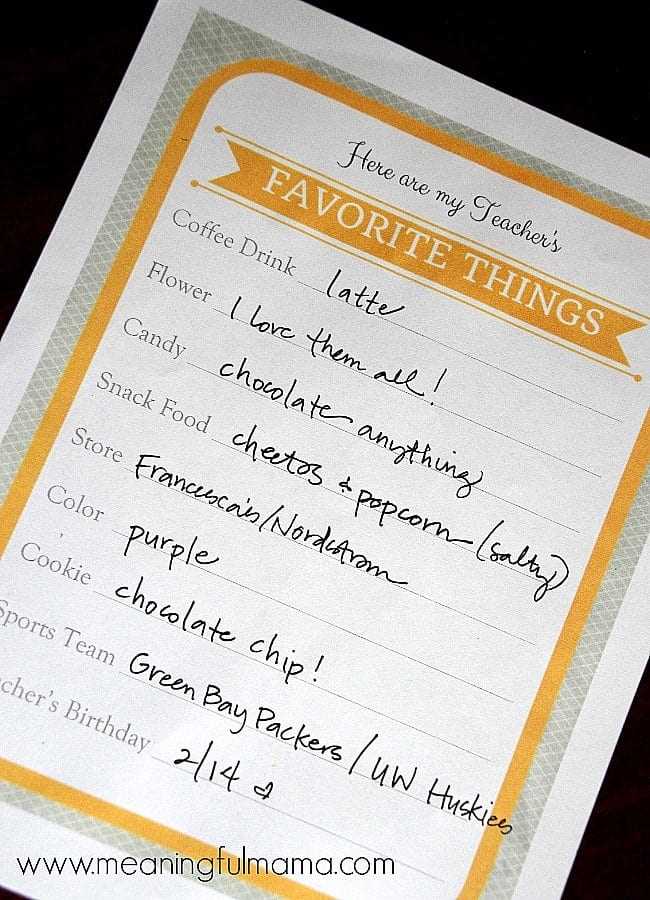 Here are my Teacher's
FAVORITE THINGS
Coffee Drink latte
Flower I love them all!
Candy chocolate anything
Snack Food cheetos & popcorn (salty)
Store Francesca's/Nordstrom
Color purple
Cookie chocolate chip!
Sports Team Green Bay Packers / UW Huskies
cher's Birthday 2/14
www.meaningfulmama.com